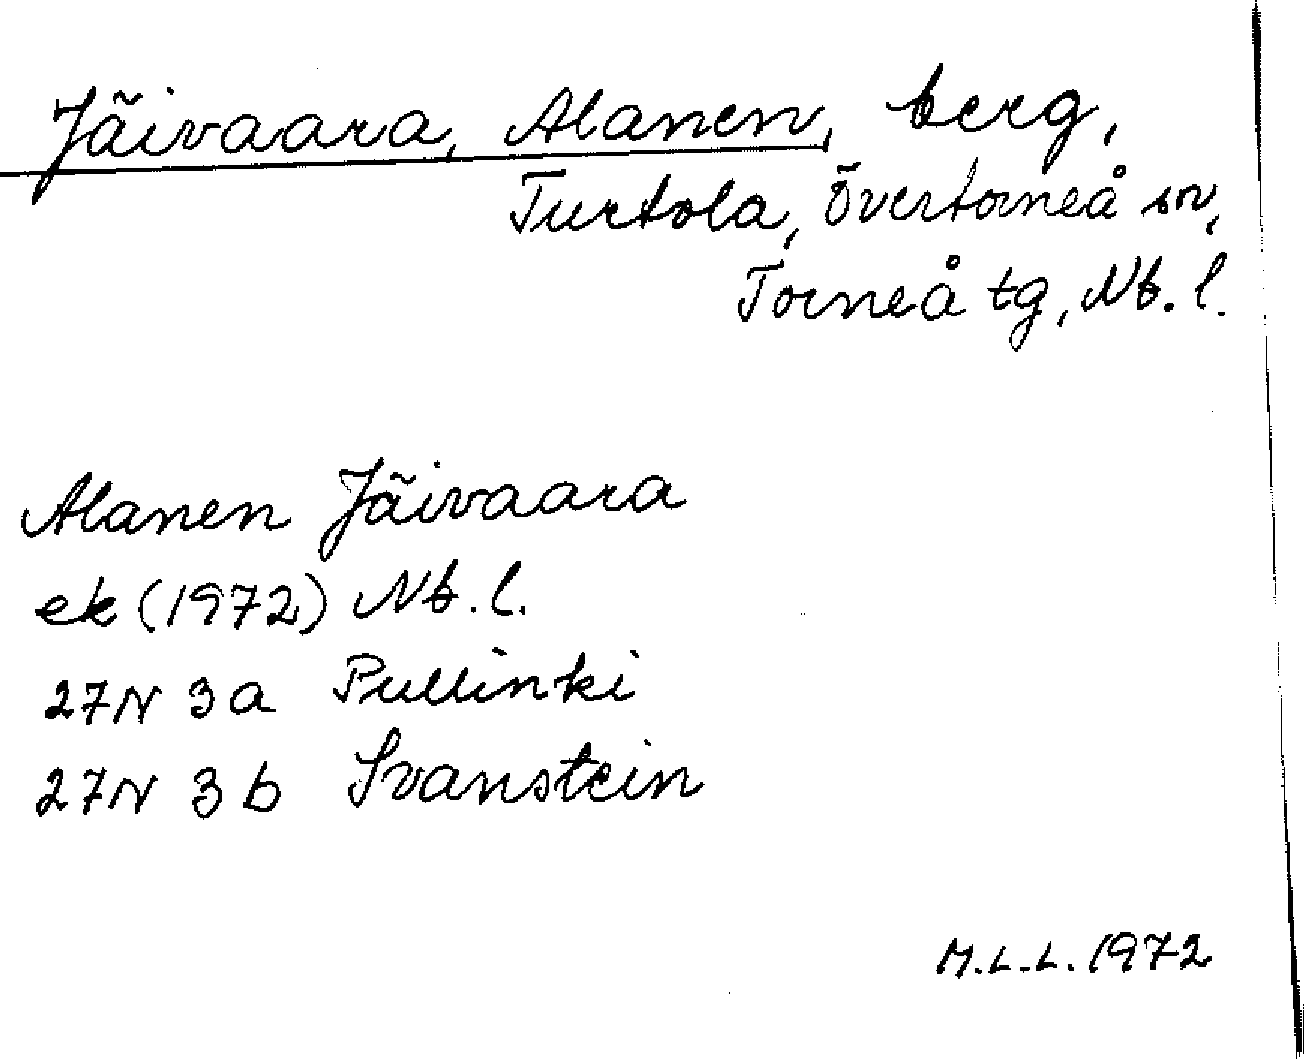 Jäivaara, Alanen, berg,
Turtola, Övertorneå sn,
Torneå tg, Nb. l.
Alanen Jäivaara
ek (1972) Nb. l.
27N 3a Pullinki
27N 3b Svanstein
M.L.L. 1972